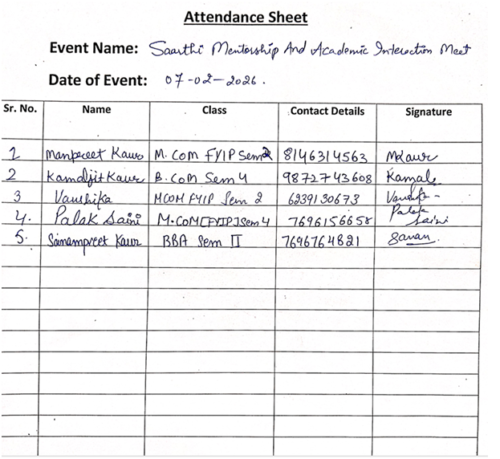 Attendance Sheet
Event Name: Saarthi Mentorship And Academic Interaction Meet
Date of Event: 07-02-2026.
Sr. No. Name Class Contact Details Signature
1 Manpreet Kaur M. Com FYIP Sem2 8146314563 MKaur
2 Kamaljit Kaur B. Com Sem 4 9872743608 Kamal
3 Vanshika MCOM FYIP Sem 2 6239130673
4. Palak Saini M.COM[FYIP]Sem 4 7696156658 Palak Saini
5. Simranpreet Kaur BBA Sem II 7696764821